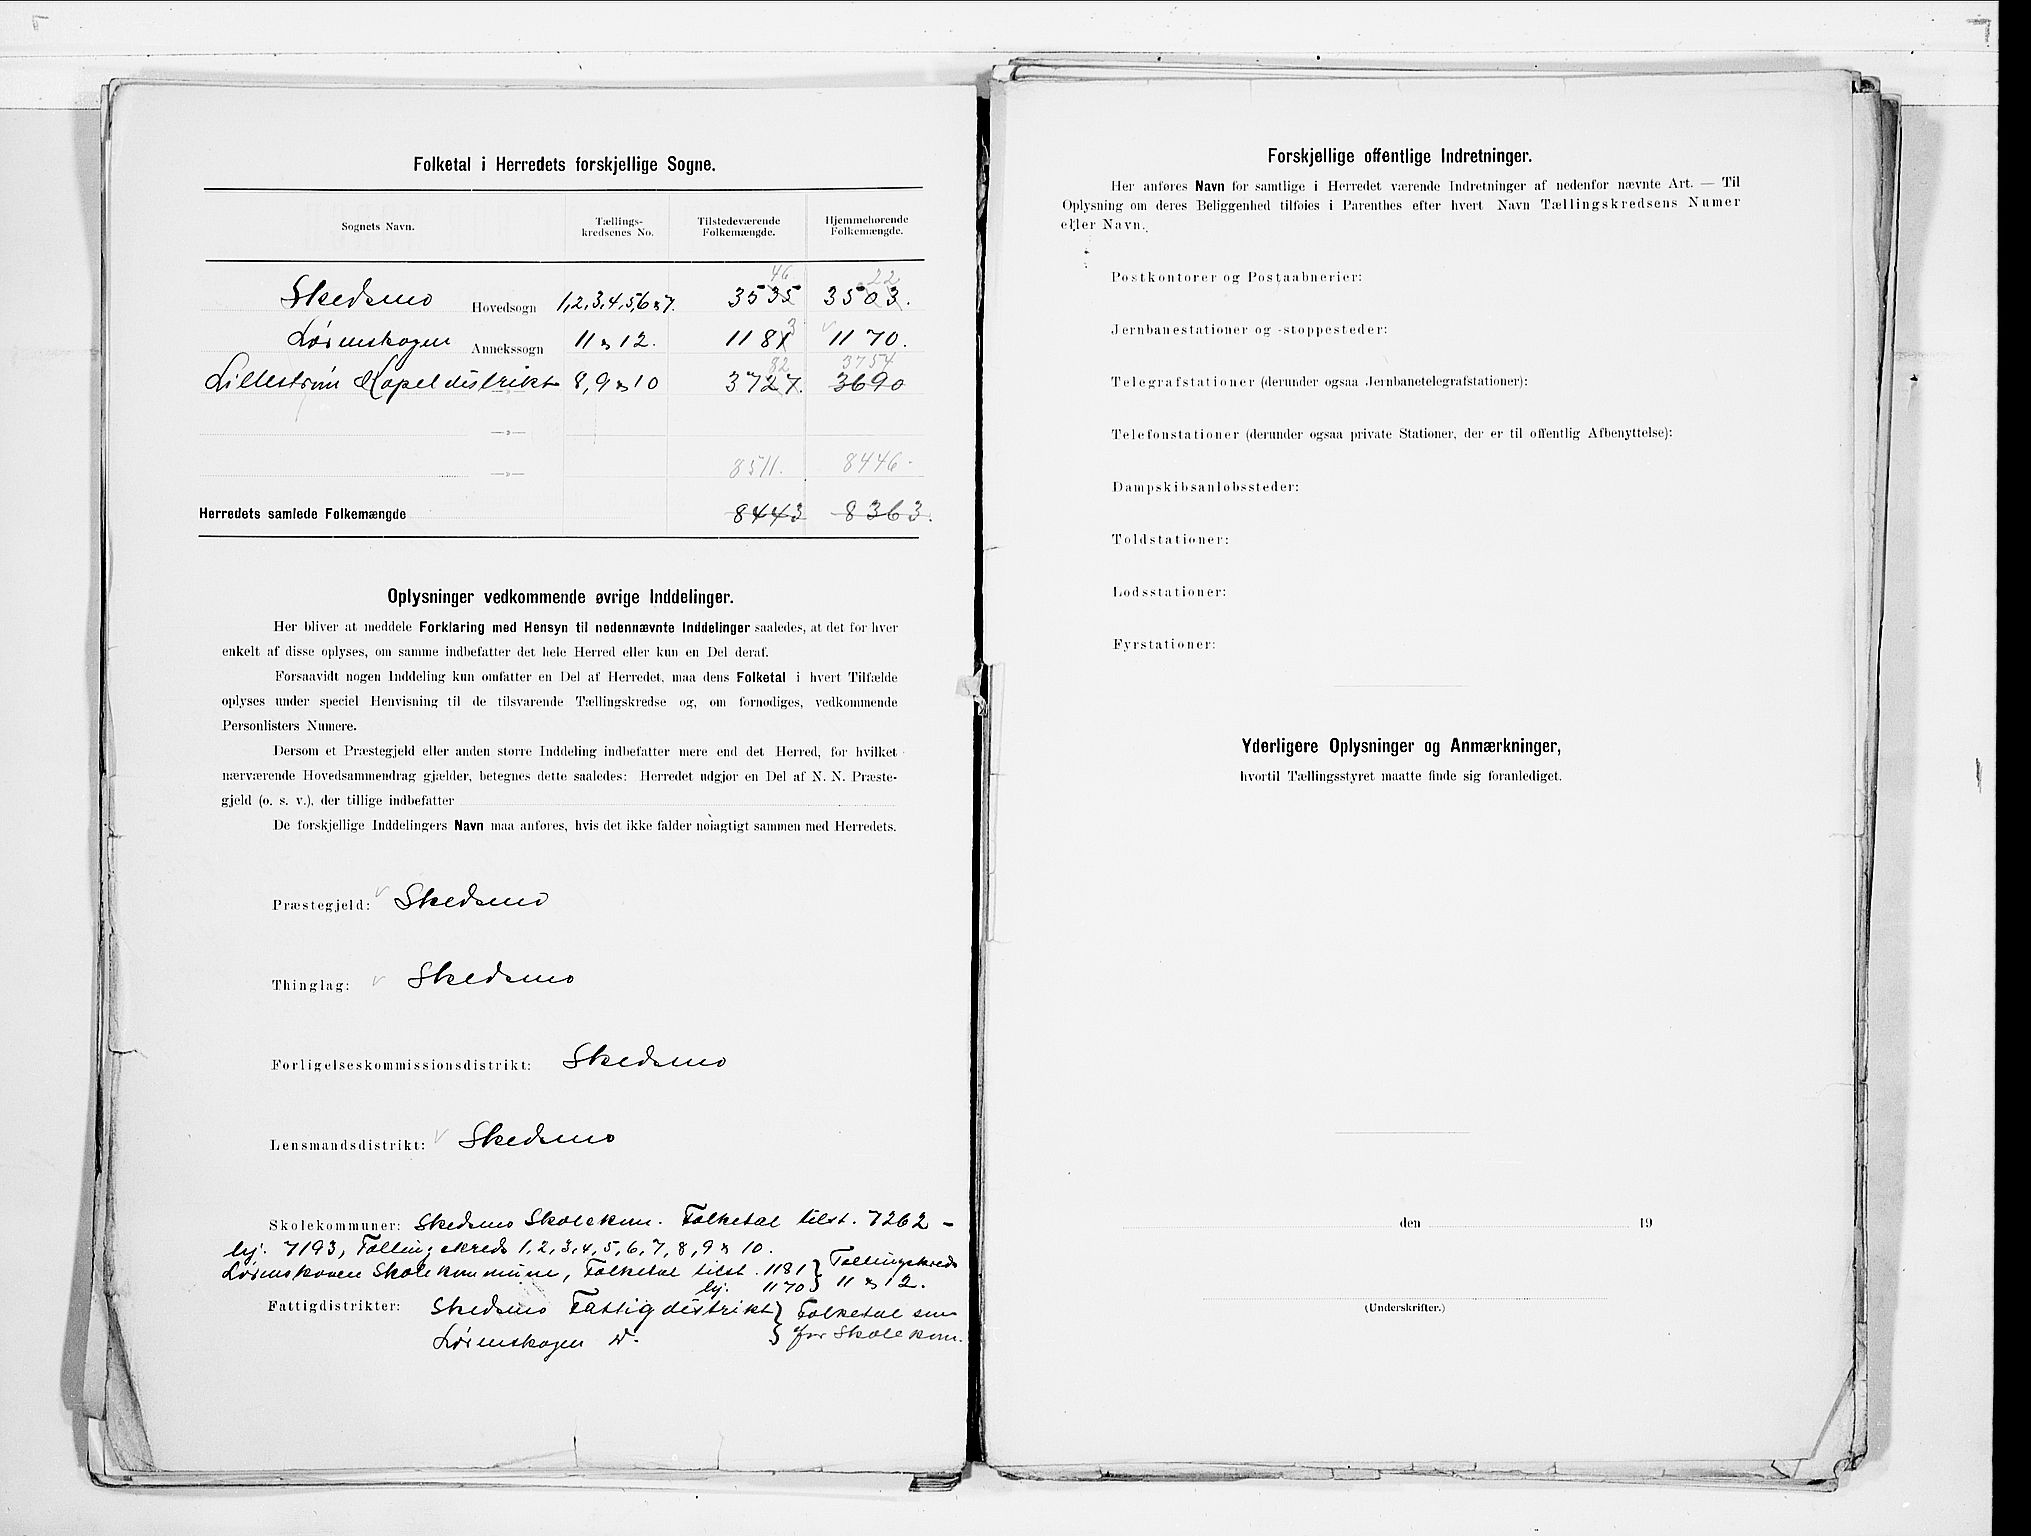 Folketal i Herredets forskjellige Sogne.
Sognets Navn. Tællings-kredsenes No. Tilstedeværende Folkemængde. Hjemmehørende Folkemængde.
46 22
Skedsmo Hovedsogn 1,2,3,4,5,6 & 7. 3535 3503.
3
Lørenskogen Annekssogn 11 & 12. 1181 1170.
82 3754
Lillestrøm Kapeldistrikt —»— 8, 9 & 10 3727. 3690
—»—
—»— 8511. 8446.
Herredets samlede Folkemængde 8443 8363.
Oplysninger vedkommende øvrige Inddelinger.
Her bliver at meddele Forklaring med Hensyn til nedennævnte Inddelinger saaledes, at det for hver
enkelt af disse oplyses, om samme indbefatter det hele Herred eller kun en Del deraf.
Forsaavidt nogen Inddeling kun omfatter en Del af Herredet, maa dens Folketal i hvert Tilfælde
oplyses under speciel Henvisning til de tilsvarende Tællingskredse og, om fornødiges, vedkommende
Personlisters Numere.
Dersom et Præstegjeld eller anden større Inddeling indbefatter mere end det Herred, for hvilket
nærværende Hovedsammendrag gjælder, betegnes dette saaledes: Herredet udgjør en Del af N. N. Præste-
gjeld (o. s. v.), der tillige indbefatter
De forskjellige Inddelingers Navn maa anføres, hvis det ikke falder nøiagtigt sammen med Herredets.
Præstegjeld: Skedsmo
Thinglag: Skedsmo
Forligelseskommissionsdistrikt: Skedsmo
Lensmandsdistrikt: Skedsmo
Skolekommuner: Skedsmo Skolekom. Folketal tilst. 7262 –
hj. 7193, Tællingskreds 1, 2, 3, 4, 5, 6, 7, 8, 9 & 10.
Lørenskogen Skolekommune, Folketal tilst. 1181 } Tællingskreds
hj. 1170 } 11 & 12.
Fattigdistrikter: Skedsmo Fattigdistrikt } Folketal som
Lørenskogen d°. } for Skolekom.
Forskjellige offentlige Indretninger.
Her anføres Navn for samtlige i Herredet værende Indretninger af nedenfor nævnte Art. — Til
Oplysning om deres Beliggenhed tilføies i Parenthes efter hvert Navn Tællingskredsens Numer
eller Navn.
Postkontorer og Postaabnerier:
Jernbanestationer og -stoppesteder:
Telegrafstationer (derunder ogsaa Jernbanetelegrafstationer):
Telefonstationer (derunder ogsaa private Stationer, der er til offentlig Afbenyttelse):
Dampskibsanløbssteder:
Toldstationer:
Lodsstationer:
Fyrstationer:
Yderligere Oplysninger og Anmærkninger,
hvortil Tællingsstyret maatte finde sig foranlediget.
den 19
(Underskrifter.)